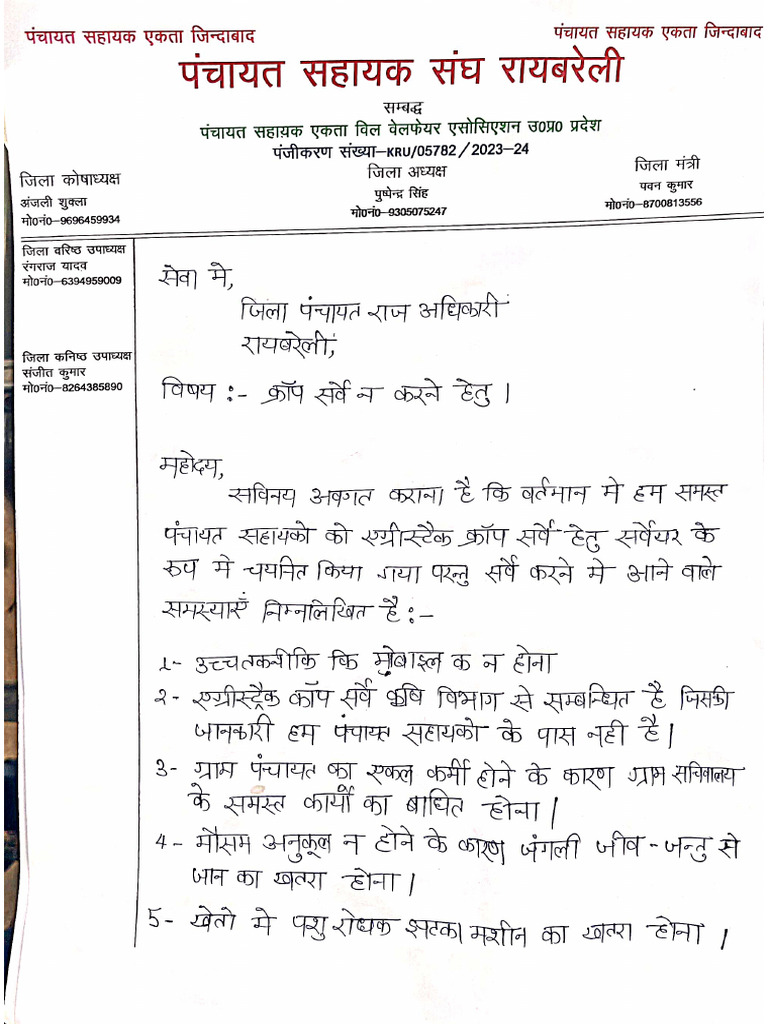 पंचायत सहायक एकता जिन्दाबाद
पंचायत सहायक एकता जिन्दाबाद
पंचायत सहायक संघ रायबरेली
सम्बद्ध
पंचायत सहायक एकता विल वेलफेयर एसोसिएशन उ0प्र0 प्रदेश
पंजीकरण संख्या–KRU/05782/2023-24
जिला कोषाध्यक्ष
अंजली शुक्ला
मो0नं0–9696459934
जिला अध्यक्ष
पुष्पेन्द्र सिंह
मो0नं0–9305075247
जिला मंत्री
पवन कुमार
मो0नं0–8700813556
जिला वरिष्ठ उपाध्यक्ष
रंगराज यादव
मो0नं0–6394959009
जिला कनिष्ठ उपाध्यक्ष
संजीत कुमार
मो0नं0–8264385890
सेवा मे,
जिला पंचायत राज अधिकारी
रायबरेली,
विषय :- क्रॉप सर्वे न करने हेतु ।
महोदय,
सविनय अवगत कराना है कि वर्तमान मे हम समस्त
पंचायत सहायको को एग्रीस्टैक क्रॉप सर्वे हेतु सर्वेयर के
रूप मे चयनित किया गया परन्तु सर्वे करने मे आने वाले
समस्याएँ निम्नलिखित है :-
1- उच्चतकनीकि कि मोबाइल क न होना
2- एग्रीस्ट्रैक क्रॉप सर्वे कृषि विभाग से सम्बन्धित है जिसकी
जानकारी हम पंचायत सहायको के पास नही है।
3- ग्राम पंचायत का एकल कर्मी होने के कारण ग्राम सचिवालय
के समस्त कार्यो का बाधित होना।
4- मौसम अनुकूल न होने के कारण जंगली जीव - जन्तु से
जान का खतरा होना।
5- खेतो मे पशु रोधक झटका मशीन का खतरा होना ।